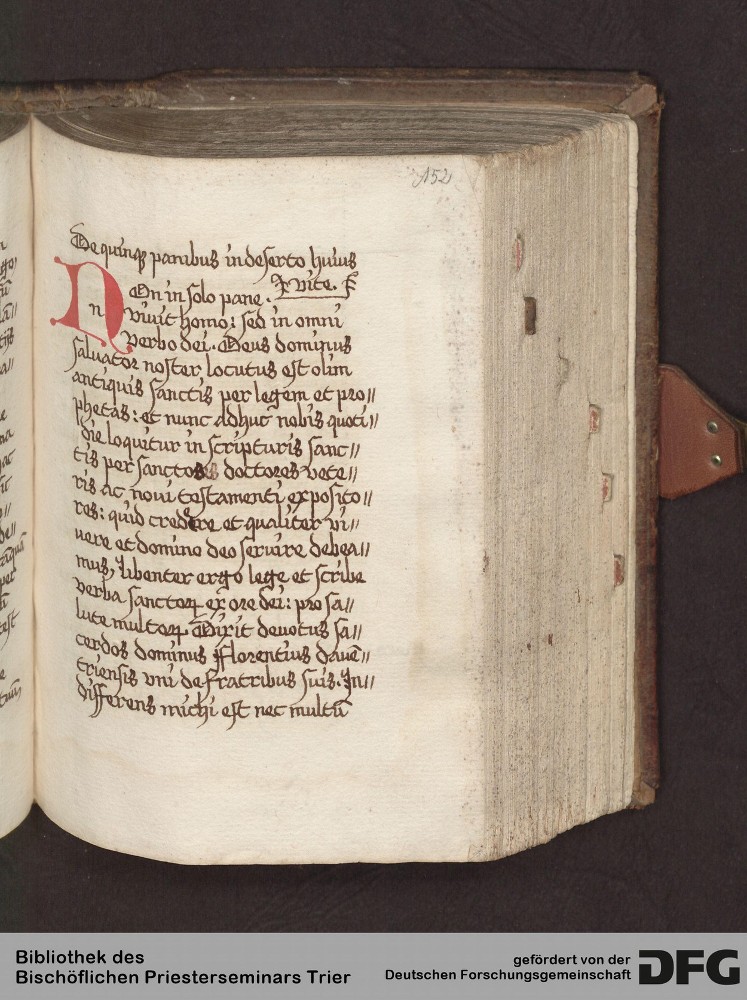 152
De quinq₃ panibus in deserto huius
vite.
NOn in solo pane.
n
viuit homo: sed in omni
verbo dei. Deus dominus
saluator noster locutus est olim
antiquis sanctis per legem et pro//
phetas: et nunc adhuc nobis quoti//
die loquitur in scripturis sanc//
tis per sanctos doctores vete//
ris ac noui testamenti exposito//
res: quid credere et qualiter vi//
uere et domino deo seruire debea//
mus, libenter ergo lege et scribe
verba sanctoꝝ ex ore dei: pro sa//
lute multoꝝ Dixit deuotus sa//
cerdos dominus fflorentius dauē//
triensis vni de fratribus suis. In//
differens michi est nec multū
Bibliothek des
Bischöflichen Priesterseminars Trier
gefördert von der
Deutschen Forschungsgemeinschaft
DFG